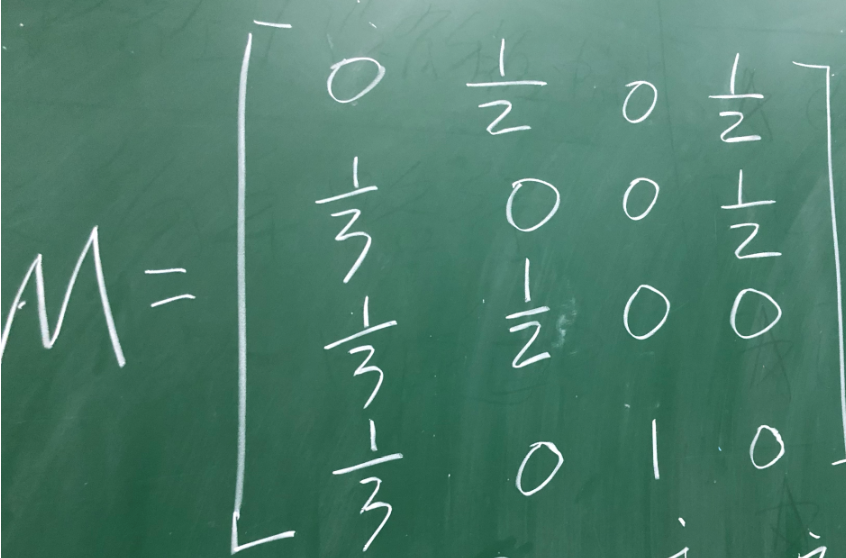 M = [ 0 1/2 0 1/2
1/3 0 0 1/2
1/3 1/2 0 0
1/3 0 1 0 ]